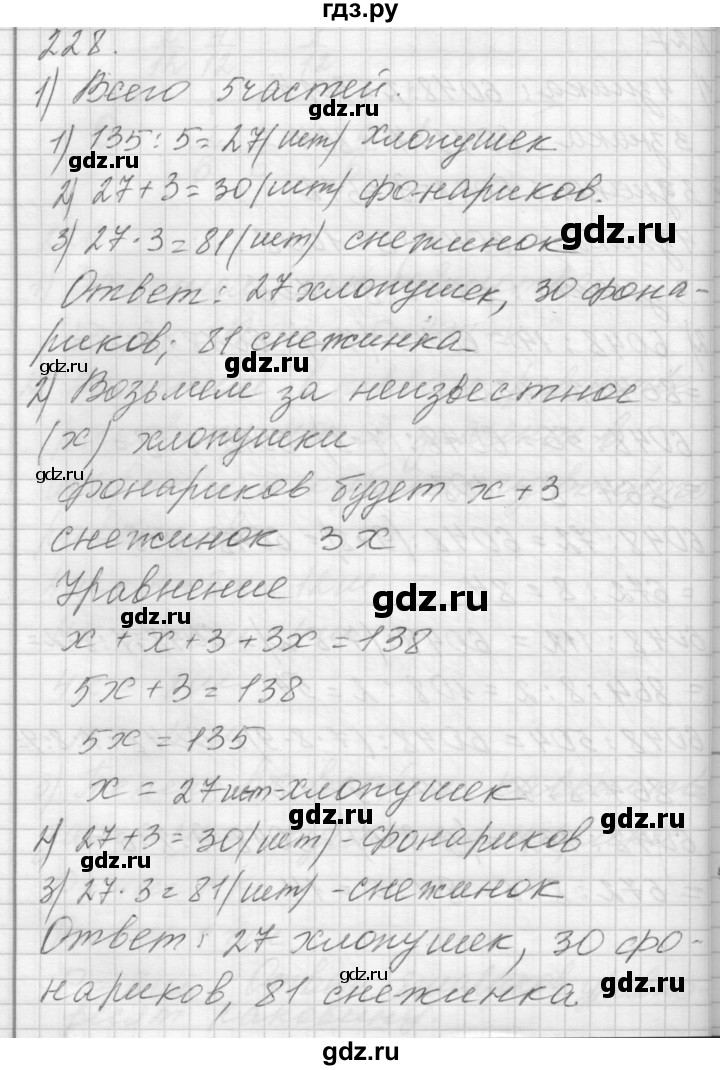 гдз.ру
228.
1) Всего 5 частей.
gdz.ru
1) 135 : 5 = 27 (шт) хлопушек
gdz.ru
2) 27 + 3 = 30 (шт) фонариков.
3) 27 · 3 = 81 (шт) снежинок
gdz.ru
Ответ: 27 хлопушек, 30 фона-
риков; 81 снежинка
gdz.ru
gdz.ru
2) Возьмем за неизвестное
(x) хлопушки
gdz.ru
фонариков будет x + 3
снежинок 3x
Уравнение
gdz.ru
gdz.ru
x + x + 3 + 3x = 138
5x + 3 = 138
5x = 135
x = 27 шт - хлопушек
gdz.ru
gdz.ru
27 + 3 = 30 (шт) - фонариков
gdz.ru
3) 27 · 3 = 81 (шт) - снежинок
Ответ: 27 хлопушек, 30 фо-
gdz.ru
нариков, 81 снежинка.
gdz.ru
gdz.ru